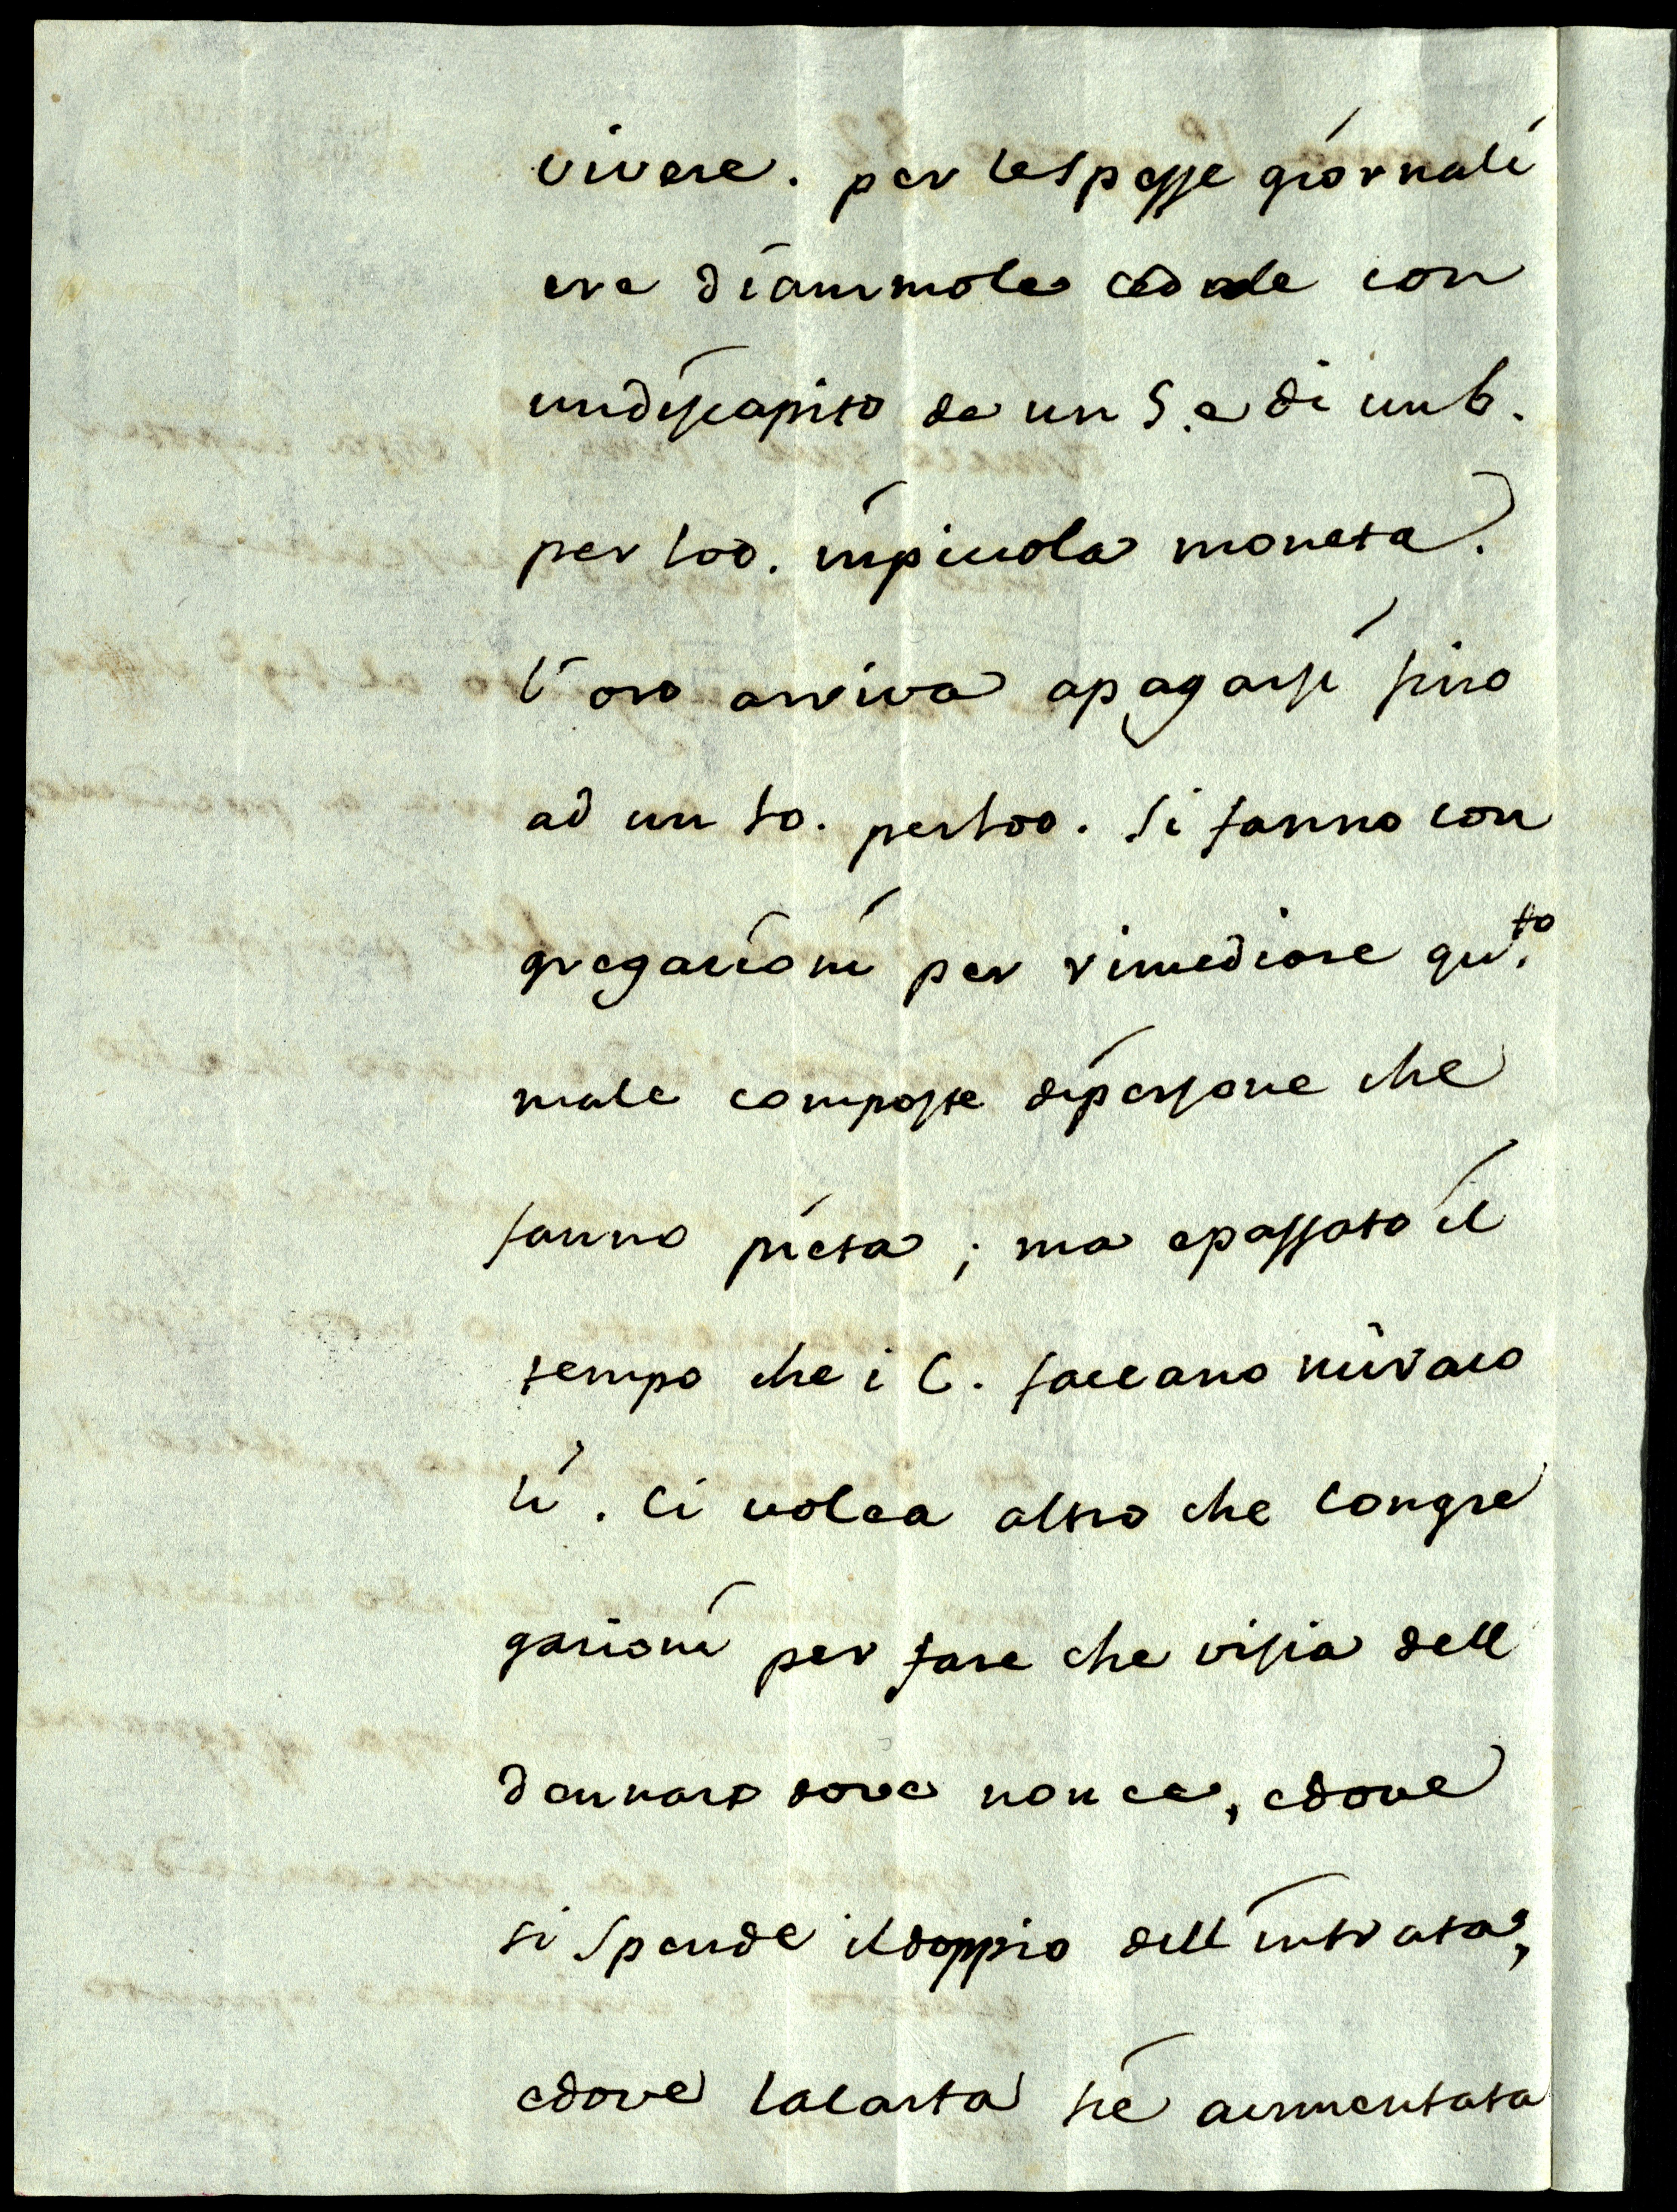 vivere. per lespesse giornali
ere diammole cedole con
undiscapito de un 5. e di un 6.
per 100. inpiccola moneta.
l'oro arriva apagarsi fino
ad un 10. per 100. si fanno con
gregazioni per rimediare qu.to
male composte dipersone che
fanno pieta; ma epassato il
tempo che i C. faceano miraco
li. Ci volea altro che Congre
gazioni per fare che visia dell
dennaro dove non ce, edove
si spende ildoppio dell intrata,
edove lacarta sié aummentata